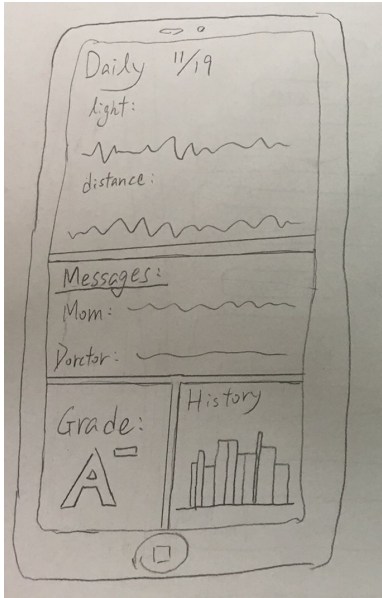 Daily 11/19
light:
distance:
Messages:
Mom:
Dorctor:
Grade:
A-
History